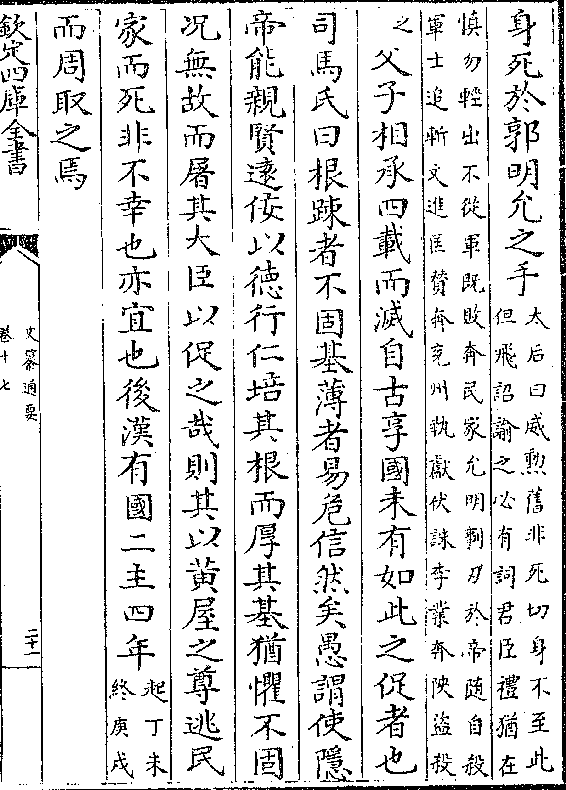 身死於郭明允之手太后曰威勲舊非死切身不至此
但飛詔諭之必有詞君臣禮猶在
慎勿輕出不從軍既敗奔民家允明剚刃於帝随自殺
軍士追斬文進匡贊奔兖州執獻伏誅李業奔陜盜殺
之父子相承四載而滅自古享國未有如此之促者也
司馬氏曰根踈者不固基薄者易危信然矣愚謂使隱
帝能親賢逺佞以徳行仁培其根而厚其基猶懼不固
况無故而屠其大臣以促之哉則其以黄屋之尊逃民
家而死非不幸也亦宜也後漢有國二主四年起丁未
終庚戌
而周取之焉
欽定四庫全書
史纂通要
卷十七
二十一